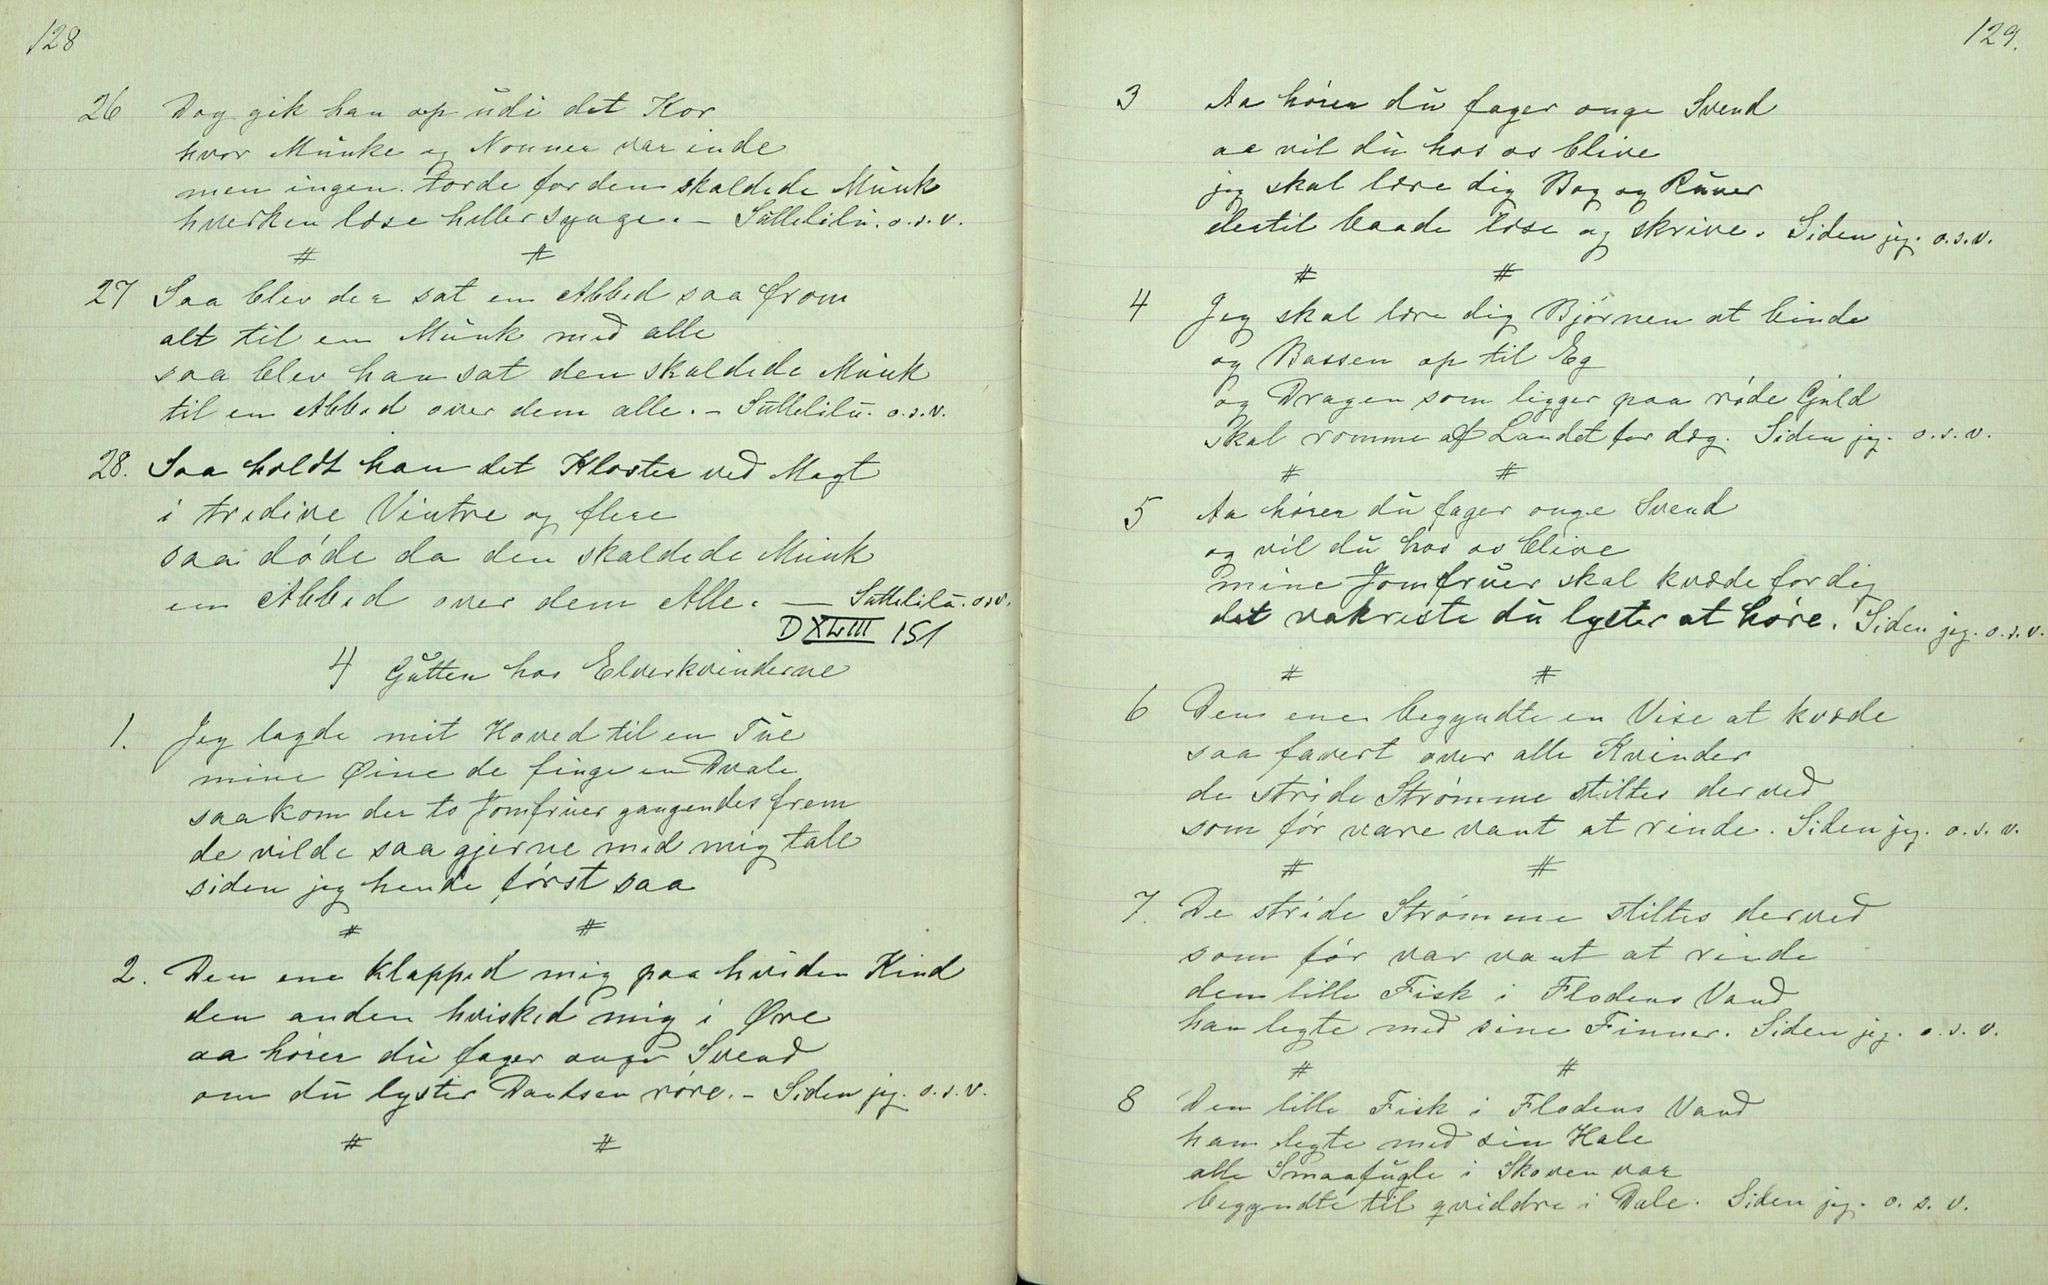 128
26 Dog gik han op udi det Kor
hvor Munke og Nonner var inde
men ingen torde for den skaldede Munk
hverken læse heller synge. – Suttelilu. o.s.v.
# #
27 Saa blev der sat en Abbed saa from
alt til en Munk med alle
saa blev han sat den skaldede Munk
til en Abbed over dem alle. – Suttelilu. o.s.v.
28. Saa holdt han det Kloster ved Magt
i tredive Vintre og flere
saa døde da den skaldede Munk
en Abbed over dem Alle. — Suttelilu. o.s.v.
D XLIII 151
4 Gutten hos Elverkvinderne
1. Jeg lagde mit Hoved til en Tue
mine Øine de finge en Dvale
saa kom der to Jomfruer gangendes frem
de vilde saa gjerne med mig tale
siden jeg hende først saa
# #
2. Den ene klapped mig paa hviden Kind
den anden hvisked mig i Øre
aa hører du fager onge Svend
om du lyster Dandsen røre. – Siden jeg. o.s.v.
# #
129.
3 Aa hører du fager onge Svend
aa vil du hos os blive
jeg skal lære dig Bog og Runer
dertil baade læse og skrive. Siden jeg. o.s.v.
# #
4 Jeg skal lære dig Bjørnen at binde
og Bassen op til Eg
og Dragen som ligger paa røde Guld
skal romme af Landet for dæg. Siden jeg. o.s.v.
# #
5 Aa hører du fager onge Svend
og vil du hos os blive
mine Jomfruer skal kvæde for dig
det vakreste du lyster at høre. Siden jeg. o.s.v.
# #
6 Den ene begyndte en Vise at kvæde
saa favert over alle Kvinder
de stride Strømme stiltes derved
som før vare vant at rinde. Siden jeg. o.s.v.
# #
7. De stride Strømme stiltes derved
som før var vant at rinde
den lille Fisk i Flodens Vand
han legte med sine Finner. Siden jeg. o.s.v.
# #
8 Den lille Fisk i Flodens Vand
han legte med sin Hale
alle Smaafugle i Skoven var
begyndte til qviddre i Dale. Siden jeg. o.s.v.